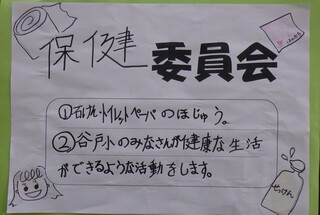 保健委員会
①石けん・トイレットペーパのほじゅう。
②谷戸小のみなさんが健康な生活
ができるような活動をします。
せっけん